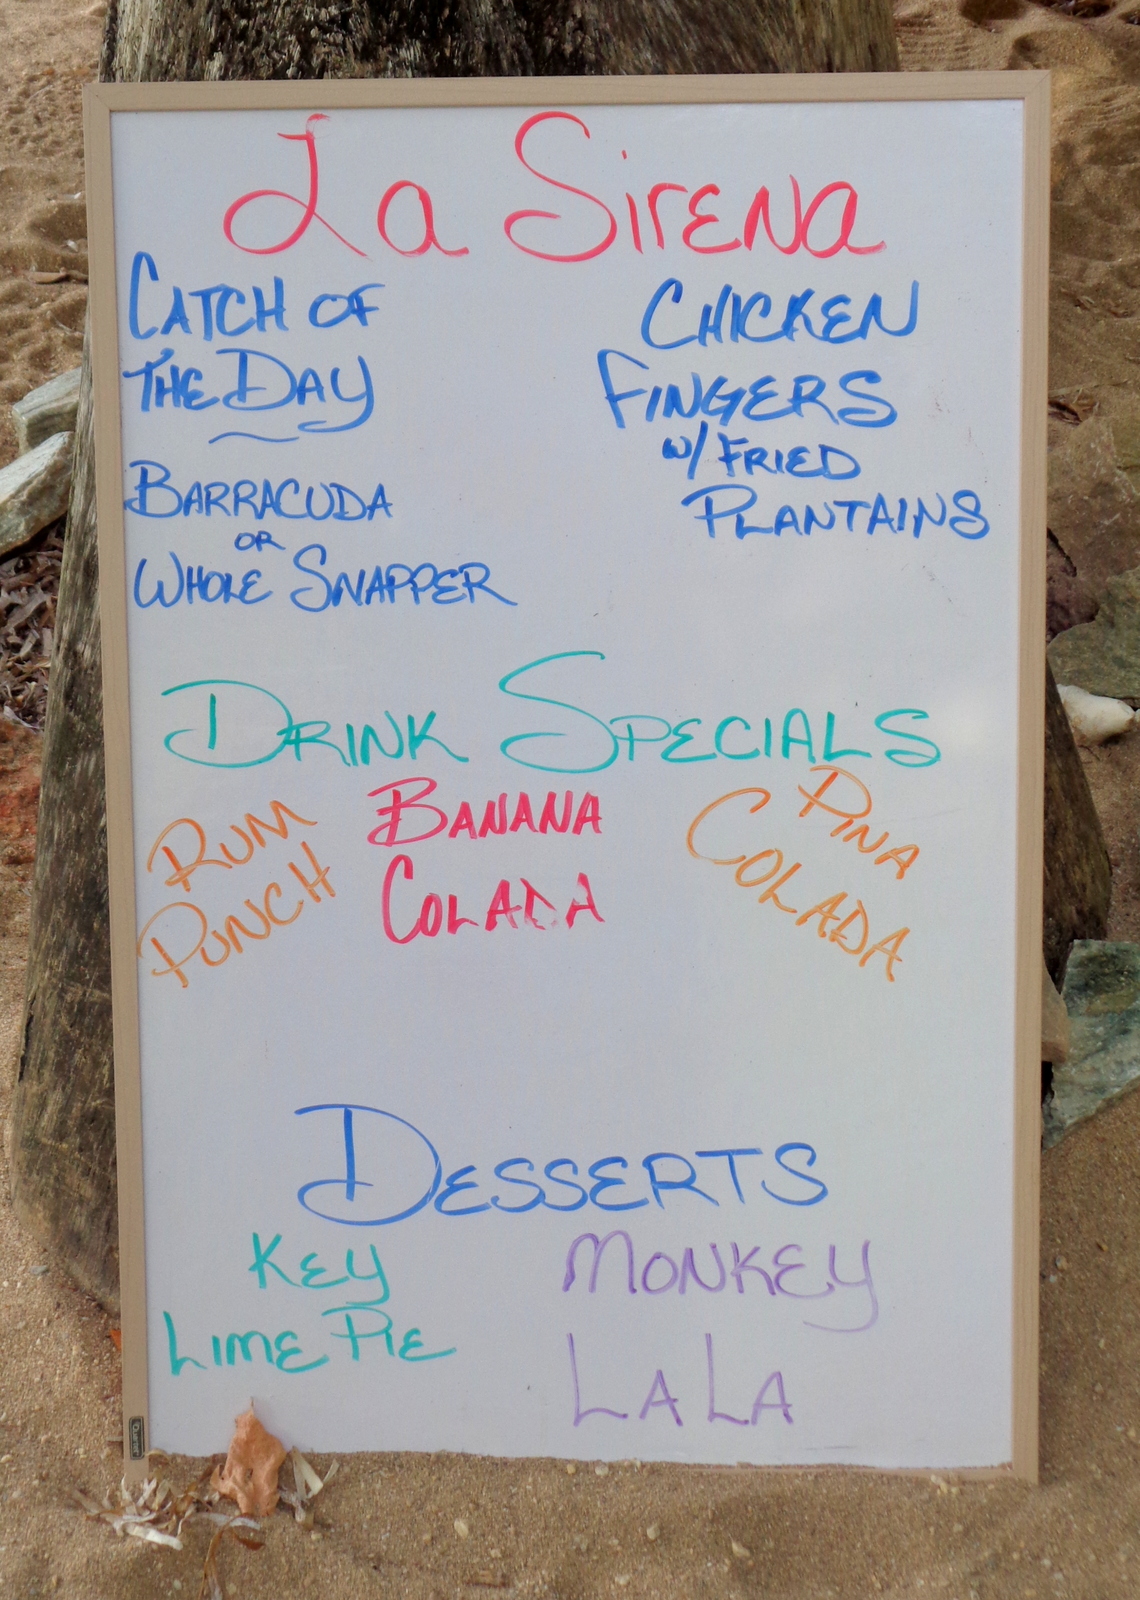 La Sirena
Catch of
the Day
Barracuda
or
Whole Snapper
Chicken
Fingers
w/ Fried
Plantains
Drink Specials
Rum
Punch
Banana
Colada
Pina
Colada
Desserts
Key
Lime Pie
Monkey
La La
Quartet